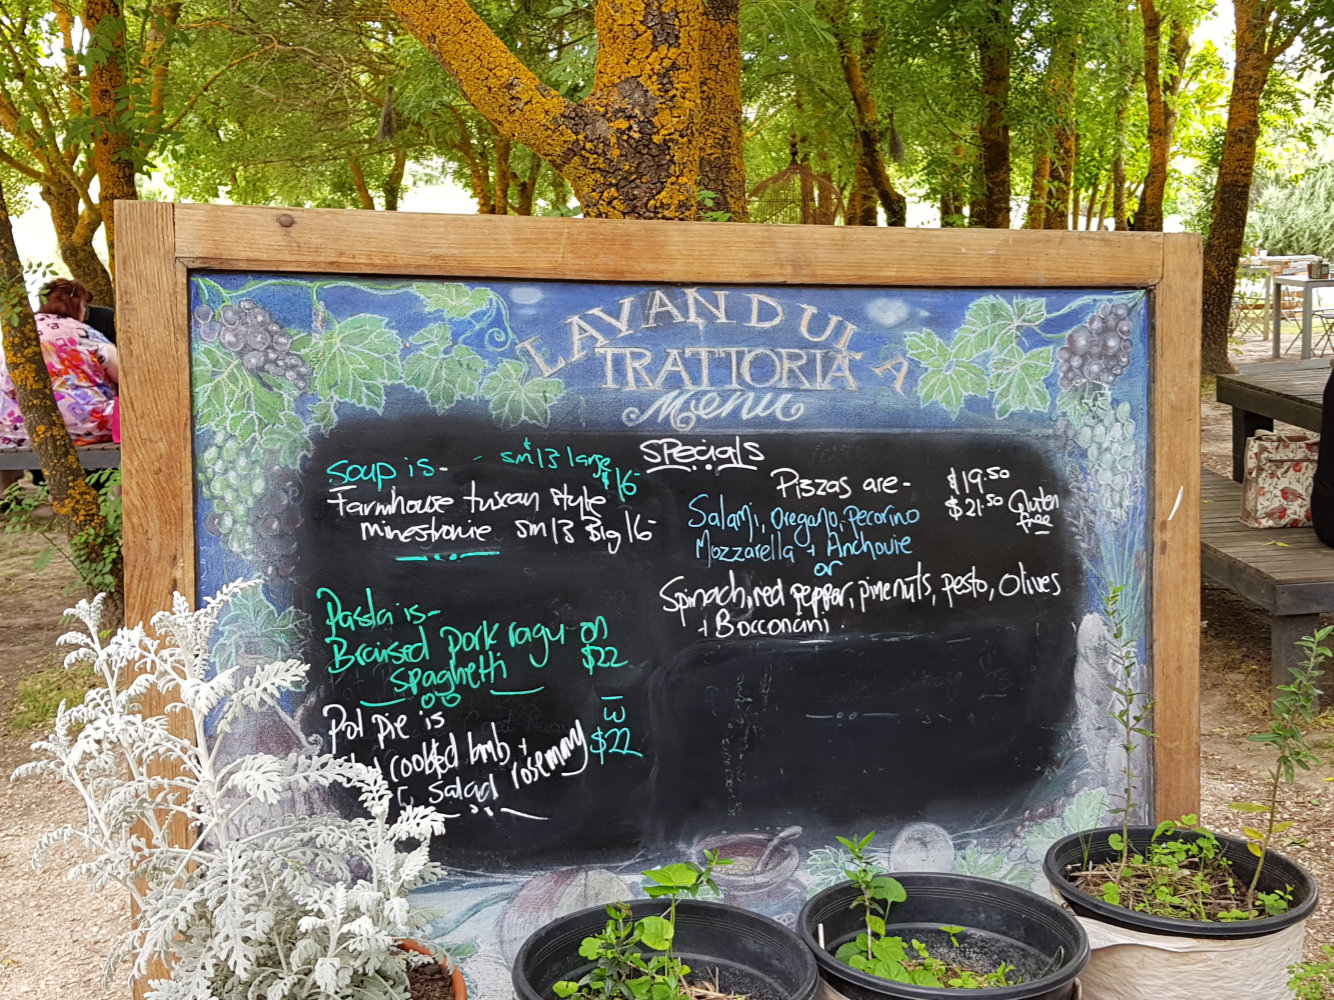 LAVANDULA
TRATTORIA
Menu
Specials
Soup is- - sm $13 large
$16-
Farmhouse tuscan style
minestronie sm13 Big 16-
Pasta is-
Braised pork ragu on
spaghetti $22
Pot pie is
cooked lamb +
rosemary $22
salad
Pizzas are- $19.50
$21.50 Gluten
free
Salami, Oregano, Pecorino
Mozzarella + Anchovie
or
Spinach, red pepper, pinenuts, pesto, Olives
+ Bocconcini